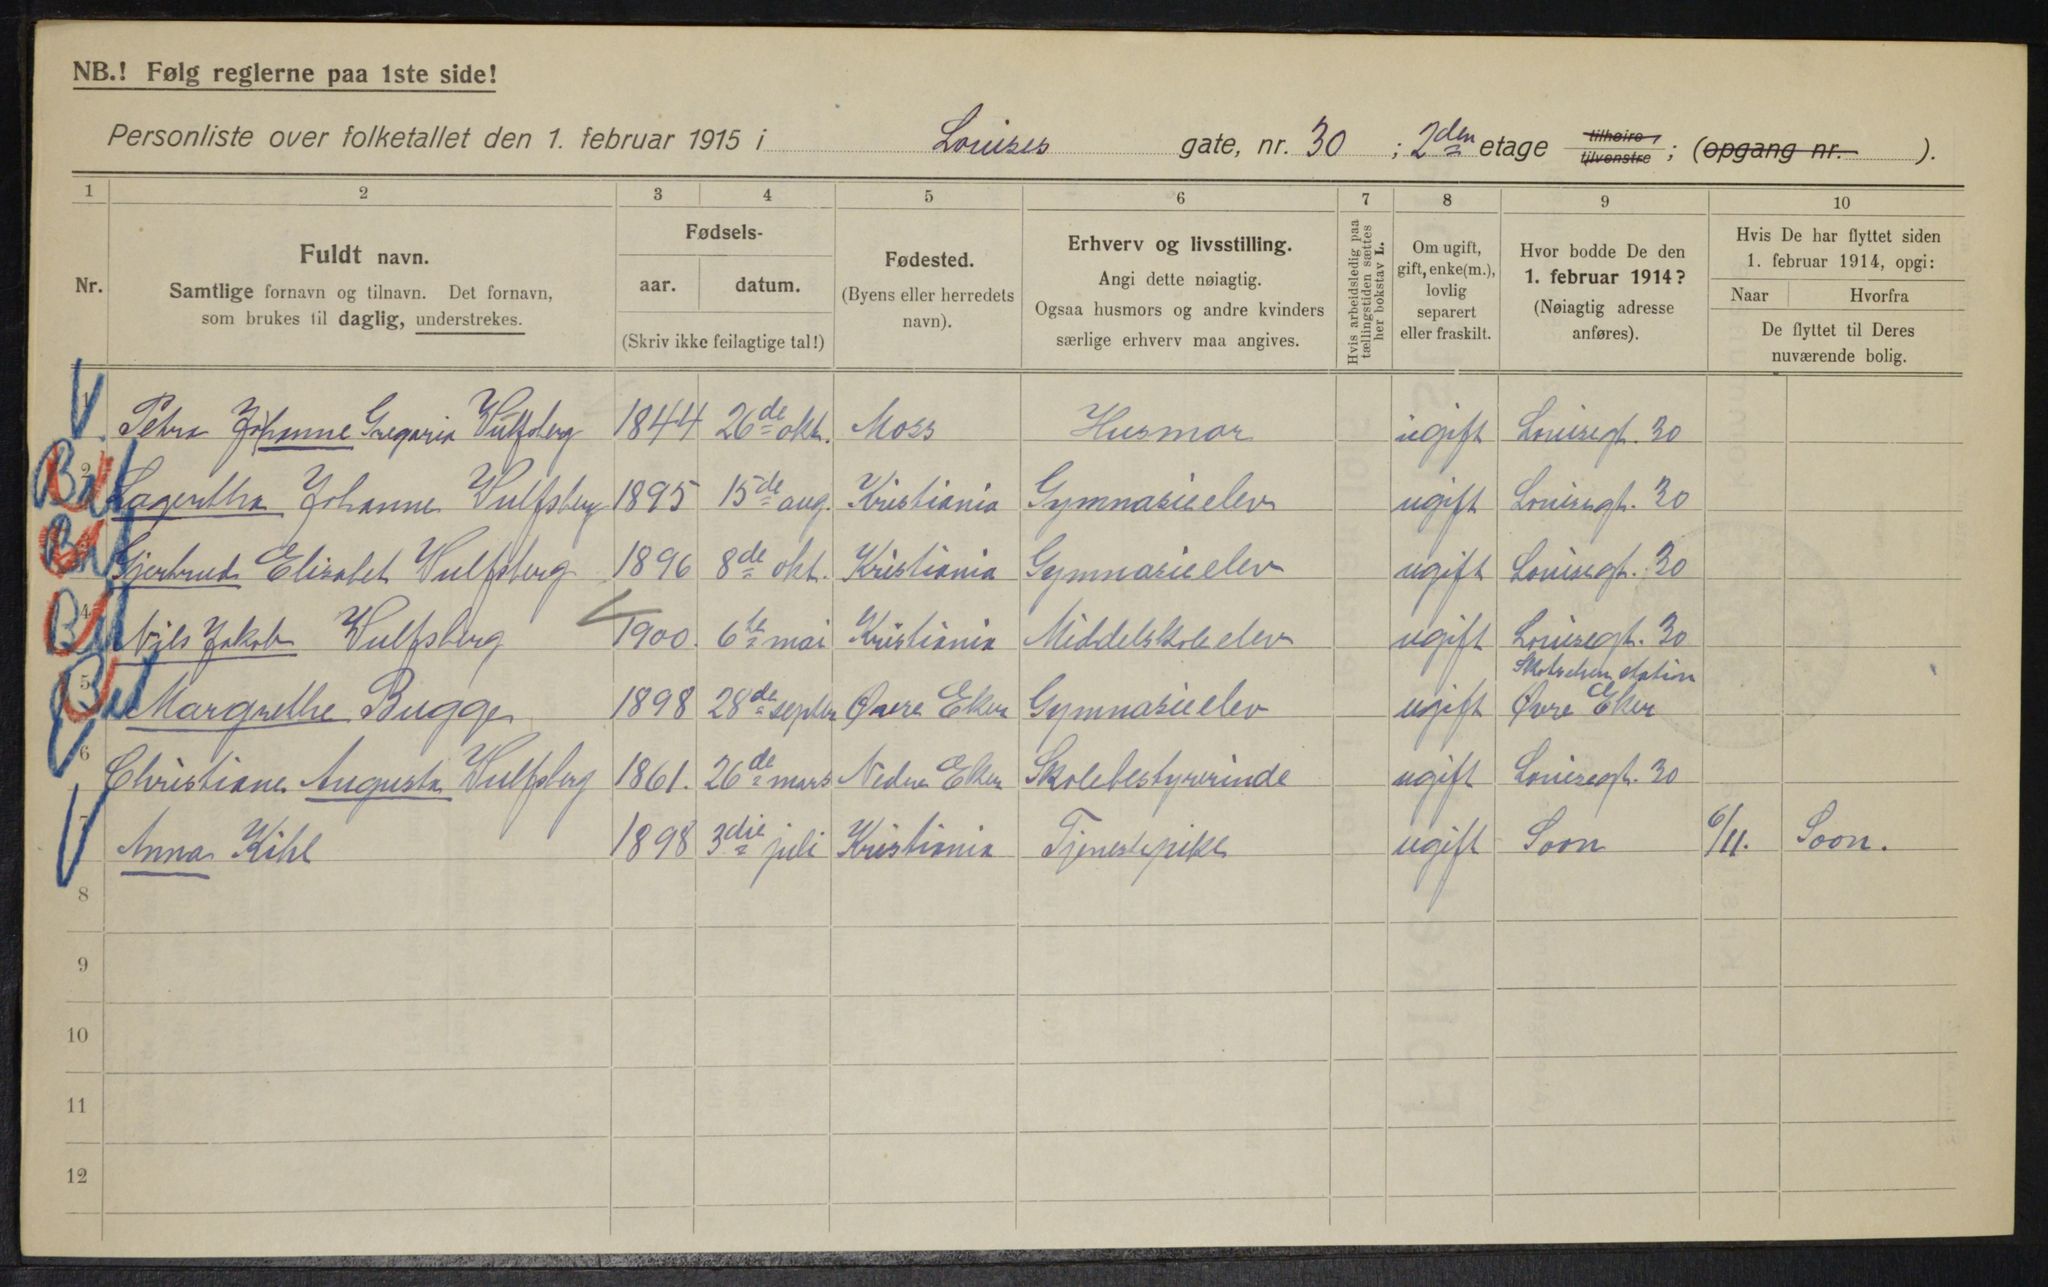 NB.! Følg reglerne paa 1ste side!
Personliste over folketallet den 1. februar 1915 i Louises gate, nr. 30 ; 2den etage tilhøire, tilvenstre ; (opgang nr. ).
1 2 3 4 5 6 7 8 9 10
Nr.
Fuldt navn.
Samtlige fornavn og tilnavn. Det fornavn,
som brukes til daglig, understrekes.
Fødsels-
aar. datum.
(Skriv ikke feilagtige tal!)
Fødested.
(Byens eller herredets
navn).
Erhverv og livsstilling.
Angi dette nøiagtig.
Ogsaa husmors og andre kvinders
særlige erhverv maa angives.
Hvis arbeidsledig paa
tællingstiden sættes
her bokstav L.
Om ugift,
gift, enke(m.),
lovlig
separert
eller fraskilt.
Hvor bodde De den
1. februar 1914?
(Nøiagtig adresse
anføres).
Hvis De har flyttet siden
1. februar 1914, opgi:
Naar Hvorfra
De flyttet til Deres
nuværende bolig.
1 Petra Johanne Gregaria Wulfsberg 1844 26de okt. Moss Husmor ugift Louisegt. 30
2 Lagertha Johanne Wulfsberg 1895 15de aug. Kristiania Gymnasieelev ugift Louisegt. 30
3 Gjertrud Elisabet Wulfsberg 1896 8de okt. Kristiania Gymnasieelev ugift Louisegt. 30
4 Nils Jakob Wulfsberg 1900. 6te mai Kristiania Middelskoleelev ugift Louisegt. 30
Skotselven station
5 Margrethe Bugge 1898 28de septbr Øvre Eker Gymnasieelev ugift Øvre Eker
6 Christiane Augusta Wulfsberg 1861. 26de mars Nedre Eker Skolebestyrerinde ugift Louisegt. 30
7 Anna Kihl 1898 3die juli Kristiania Tjenestepike ugift Soon 6/11. Soon.
8
9
10
11
12